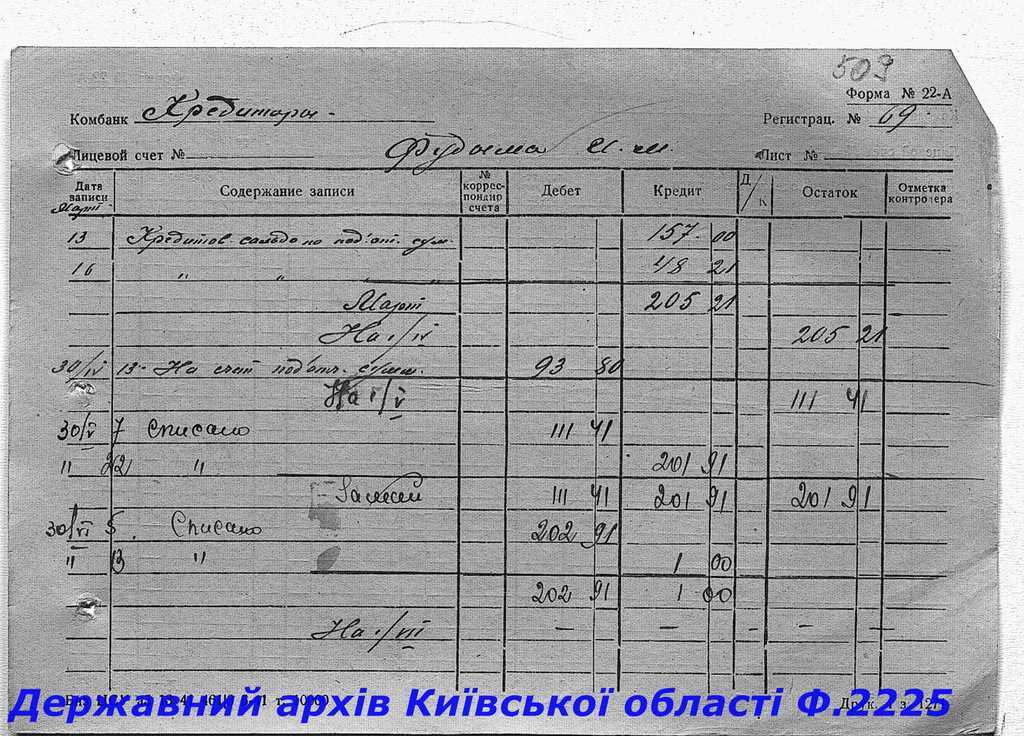 509
Форма № 22-А
Комбанк Кредиторы
Регистрац. № 69
Лицевой счет №
Фудыма И. М.
Лист №
Дата записи Март
Содержание записи
№ коррес-пондир счета
Дебет
Кредит
Д/К
Остаток
Отметка контролера
13 Кредитов. сальдо по под'от. сум. 157 00
16 " " 48 21
Март 205 21
На 1/IV 205 21
30/IV 13 На счет под'отч. сумм. 93 80
На 1/V 111 41
30/V 7 Списано 111 41
" 22 " 201 91
111 41 201 91 201 91
30/VI 5. Списано 202 91
" 13 " 1 00
202 91 1 00
На 1/VII – – – – –
Державний архів Київської області Ф.2225